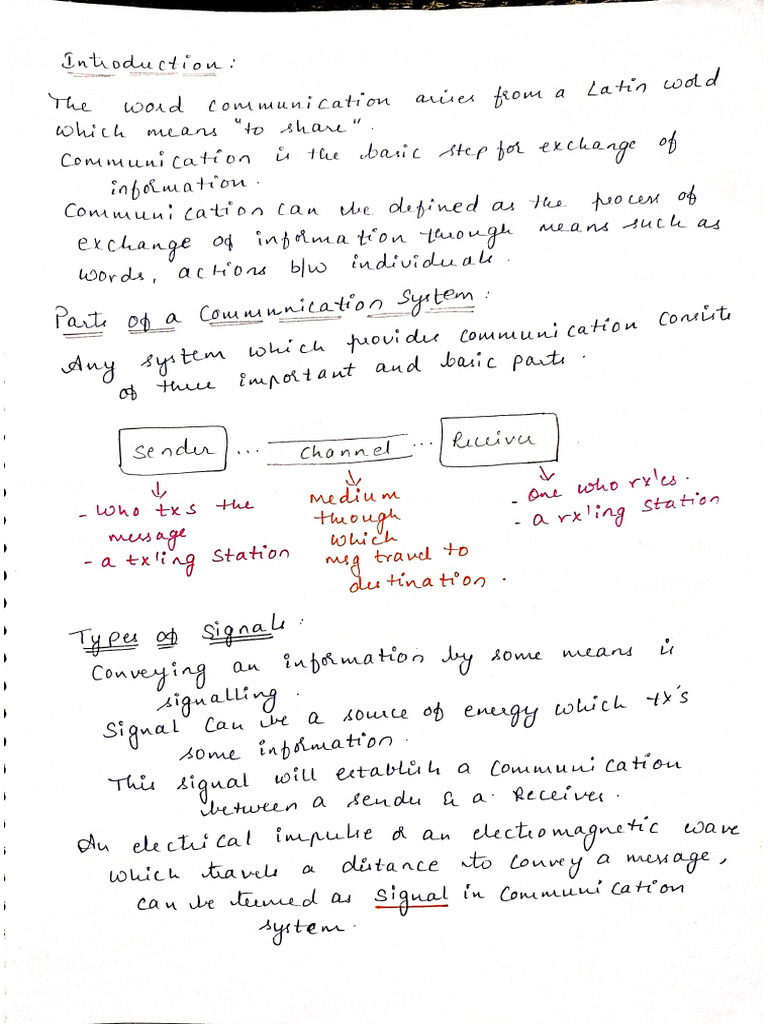 Introduction:
The word communication arises from a Latin word
which means "to share".
Communication is the basic step for exchange of
information.
Communication can be defined as the process of
exchange of information through means such as
words, actions b/w individuals.
Parts of a Communication System:
Any system which provides communication consists
of three important and basic parts.
Sender ... Channel ... Receiver
- Who txs the
message
- a tx'ing Station
Medium
through
which
msg travel to
destination.
- One who rx'es.
- a rx'ing Station
Types of Signals:
Conveying an information by some means is
signalling.
Signal can be a source of energy which tx's
some information.
This signal will establish a communication
between a sender & a Receiver.
An electrical impulse or an electromagnetic wave
which travels a distance to convey a message,
can be termed as Signal in Communication
system.